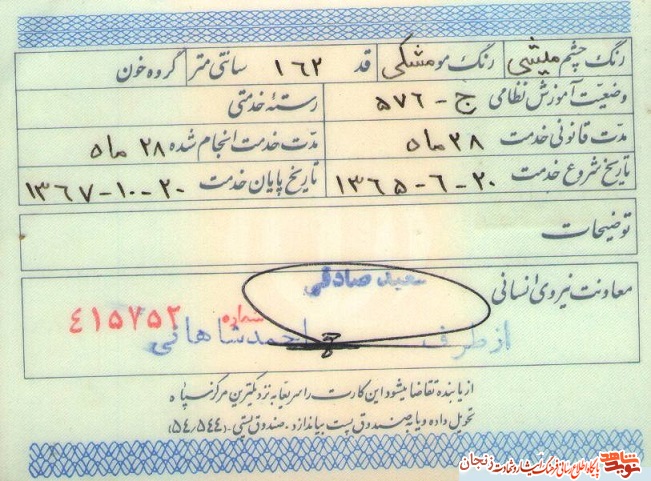 رنگ چشم میشی رنگ مو مشکی قد ۱۶۲ سانتی متر گروه خون
وضعیت آموزش نظامی ج - ۵۷۶ رسته خدمتی
مدت قانونی خدمت ۲۸ ماه مدت خدمت انجام شده ۲۸ ماه
تاریخ شروع خدمت ۲۰-۶-۱۳۶۵ تاریخ پایان خدمت ۲۰-۱۰-۱۳۶۷
توضیحات
معاونت نیروی انسانی
سعید صادقی
شماره ۴۱۵۷۵۲
از طرف احمد شاهانی
از یابنده تقاضا میشود این کارت را سریعا به نزدیکترین مرکز سپاه
تحویل داده و یا به صندوق پست بیاندازد. صندوق پستی - (۵۴،۵۴۴)
نوید شاهد پایگاه اطلاع رسانی فرهنگ ایثار و شهادت زنجان